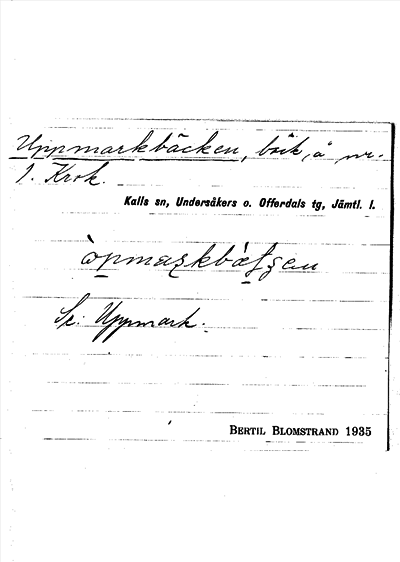 Uppmarkbäcken, bäck, å nr.
1. Krok.
Kalls sn, Undersåkers o. Offerdals tg, Jämtl. l.
Se. Uppmark.
BERTIL BLOMSTRAND 1935